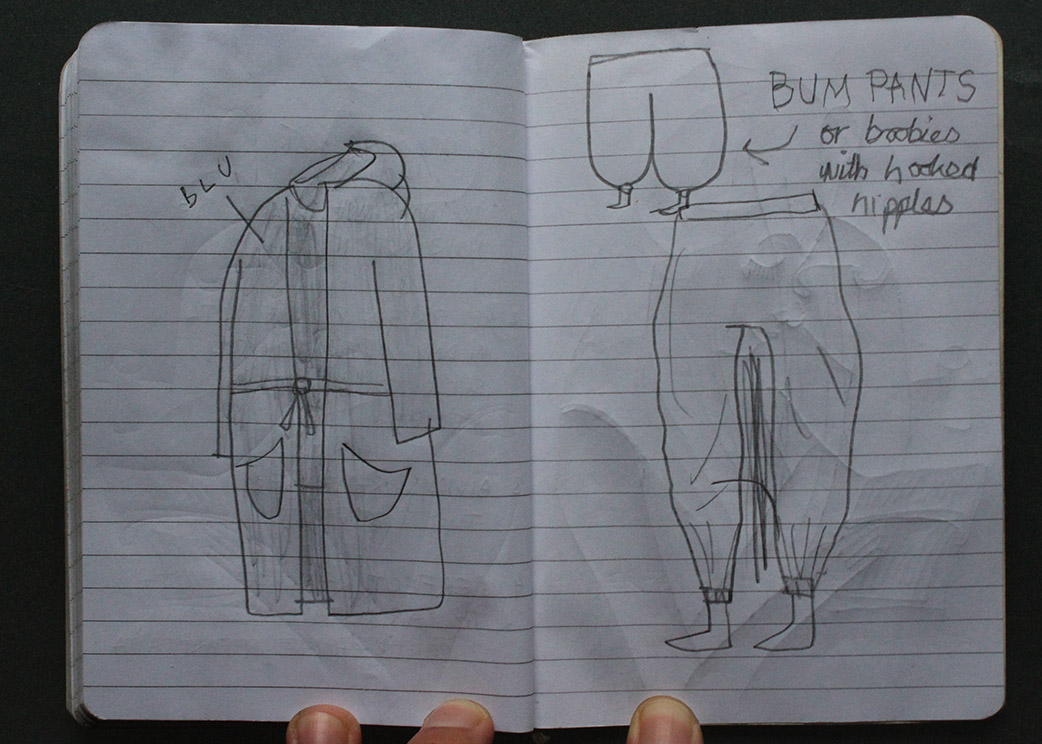 BLU
BUM PANTS
or boobies
with hooked
nipples